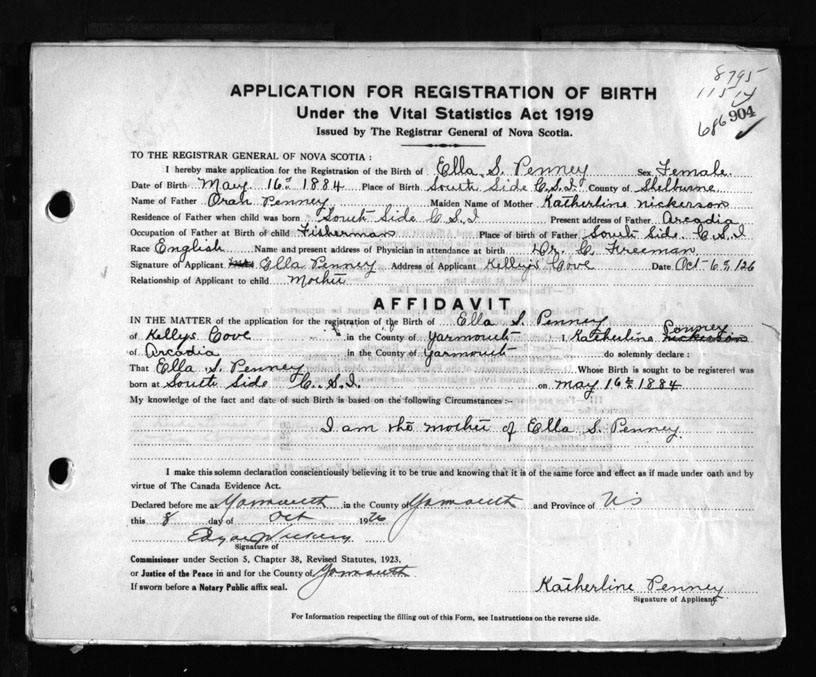 8795
11514
686 904
APPLICATION FOR REGISTRATION OF BIRTH
Under the Vital Statistics Act 1919
Issued by The Registrar General of Nova Scotia.
TO THE REGISTRAR GENERAL OF NOVA SCOTIA :
I hereby make application for the Registration of the Birth of Ella S. Penney Sex Female
Date of Birth May 16th 1884 Place of Birth South Side C.S.I. County of Shelburne
Name of Father Penney Maiden Name of Mother Katherline Nickerson
Residence of Father when child was born South Side C.S.I Present address of Father Arcadia
Occupation of Father at Birth of child Fisherman Place of birth of Father South Side C.S.I
Race English Name and present address of Physician in attendance at birth Dr. C. Freeman
Signature of Applicant Ella Penney Address of Applicant Kellys Cove Date Oct 6th, 26
Relationship of Applicant to child Mother
AFFIDAVIT
IN THE MATTER of the application for the registration of the Birth of Ella S. Penney
of Kellys Cove in the County of Yarmouth I, Katherline Penney Nickerson
of Arcadia in the County of Yarmouth do solemnly declare :
That Ella S. Penney Whose Birth is sought to be registered was
born at South Side C.S.I. on May 16th 1884
My knowledge of the fact and date of such Birth is based on the following Circumstances :-
I am the mother of Ella S. Penney.
I make this solemn declaration conscientiously believing it to be true and knowing that it is of the same force and effect as if made under oath and by
virtue of The Canada Evidence Act.
Declared before me at Yarmouth in the County of Yarmouth and Province of NS
this 8 day of Oct 1926
Signature of
Commissioner under Section 5, Chapter 38, Revised Statutes, 1923.
or Justice of the Peace in and for the County of Yarmouth
If sworn before a Notary Public affix seal.
Katherline Penney
Signature of Applicant
For Information respecting the filling out of this Form, see Instructions on the reverse side.